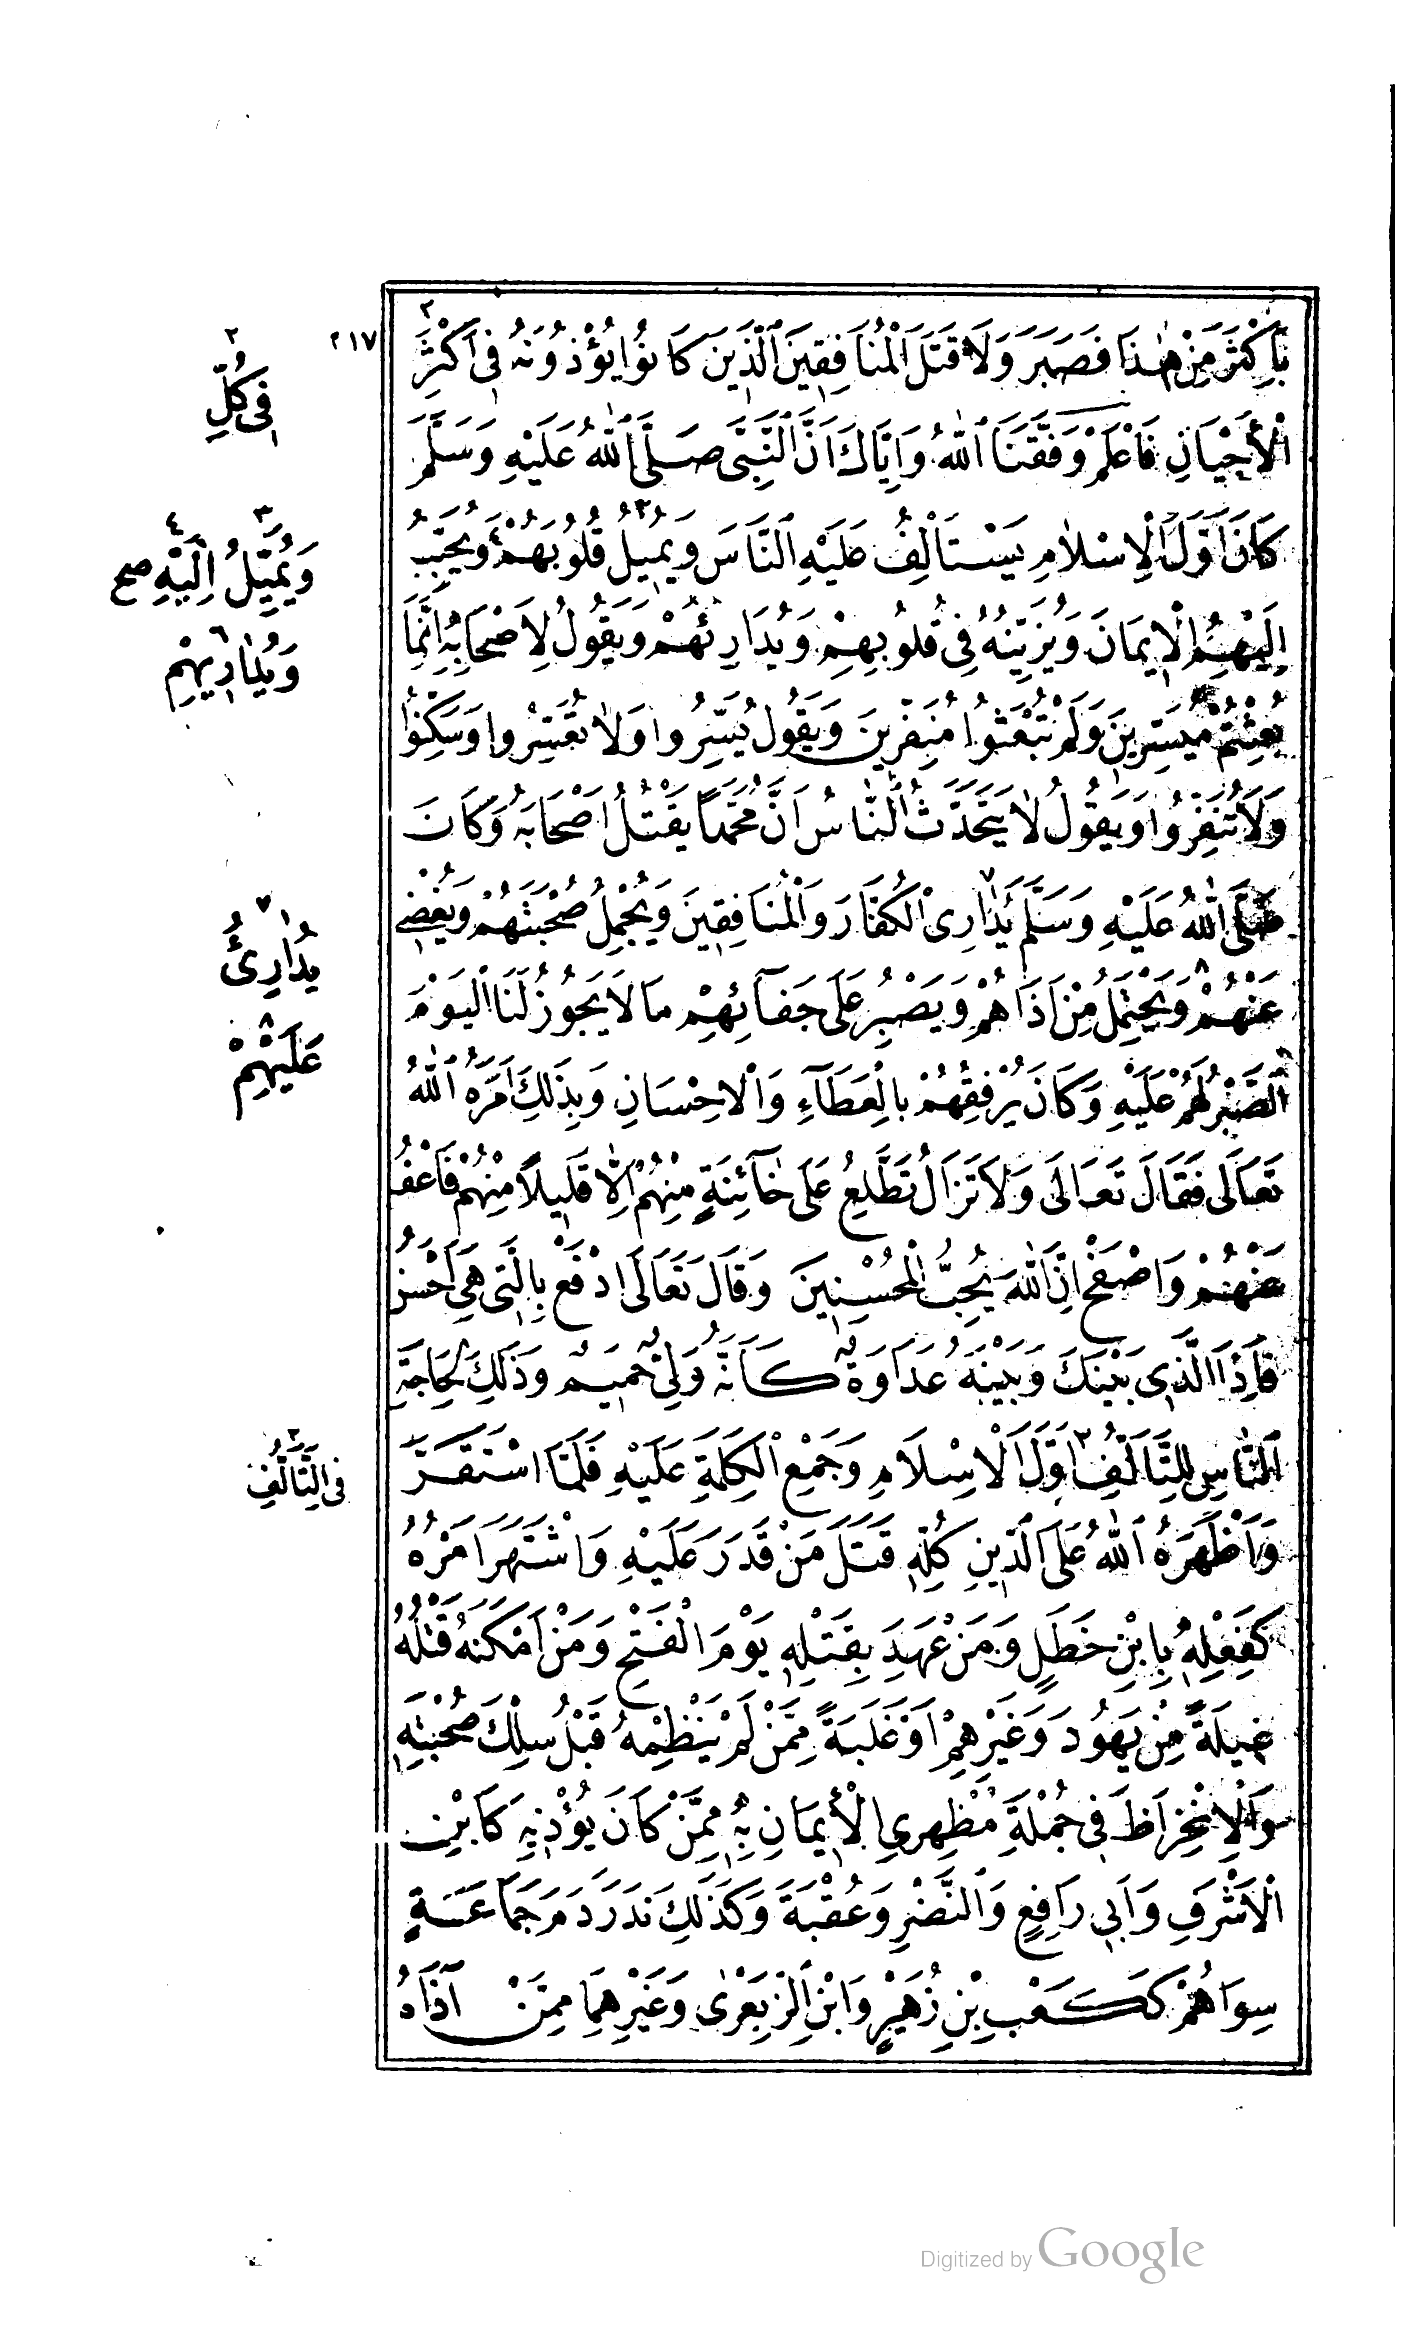 ٢١٧
بِأَكْثَرَ مِنْ هٰذَا فَصَبَرَ وَلَا قَتَلَ الْمُنَافِقِينَ الَّذِينَ كَانُوا يُؤْذُونَهُ فِي أَكْثَرِ ٢
الْأَحْيَانِ فَاعْلَمْ وَفَّقَنَا اللهُ وَإِيَّاكَ أَنَّ النَّبِيَّ صَلَّى اللهُ عَلَيْهِ وَسَلَّمَ
كَانَ أَوَّلَ الْإِسْلَامِ يَسْتَأْلِفُ عَلَيْهِ النَّاسَ وَيُمِيلُ ٣ قُلُوبَهُمْ ٤ وَيُحَبِّبُ
إِلَيْهِمُ الْإِيمَانَ وَيُزَيِّنُهُ فِي قُلُوبِهِمْ وَيُدَارِئُهُمْ ٦ وَيَقُولُ لِأَصْحَابِهِ إِنَّمَا
بُعِثْتُمْ مُيَسِّرِينَ وَلَمْ تُبْعَثُوا مُنَفِّرِينَ وَيَقُولُ يَسِّرُوا وَلَا تُعَسِّرُوا وَسَكِّنُوا
وَلَا تُنَفِّرُوا وَيَقُولُ لَا يَتَحَدَّثُ النَّاسُ أَنَّ مُحَمَّداً يَقْتُلُ أَصْحَابَهُ وَكَانَ
صَلَّى اللهُ عَلَيْهِ وَسَلَّمَ يُدَارِى ٧ الْكُفَّارَ وَالْمُنَافِقِينَ وَيُجْمِلُ صُحْبَتَهُمْ وَيُغْضِي
عَنْهُمْ ٨ وَيَحْتَمِلُ مِنْ أَذَاهُمْ وَيَصْبِرُ عَلَى جَفَائِهِمْ مَا لَا يَجُوزُ لَنَا الْيَوْمَ
الصَّبْرُ لَهُمْ عَلَيْهِ وَكَانَ يُرْفِقُهُمْ بِالْعَطَاءِ وَالْإِحْسَانِ وَبِذَلِكَ أَمَرَهُ اللهُ
تَعَالَى فَقَالَ تَعَالَى وَلَا تَزَالُ تَطَّلِعُ عَلَى خَائِنَةٍ مِنْهُمْ إِلَّا قَلِيلاً مِنْهُمْ فَاعْفُ
عَنْهُمْ وَاصْفَحْ إِنَّ اللهَ يُحِبُّ الْمُحْسِنِينَ وَقَالَ تَعَالَى ادْفَعْ بِالَّتِي هِيَ أَحْسَنُ
فَإِذَا الَّذِي بَيْنَكَ وَبَيْنَهُ عَدَاوَةٌ كَأَنَّهُ وَلِيٌّ حَمِيمٌ وَذَلِكَ لِحَاجَةِ
النَّاسِ لِلتَّأَلُّفِ ٢ أَوَّلَ الْإِسْلَامِ وَجَمْعِ الْكَلِمَةِ عَلَيْهِ فَلَمَّا اسْتَقَرَّ
وَأَظْهَرَهُ اللهُ عَلَى الدِّينِ كُلِّهِ قَتَلَ مَنْ قَدَرَ عَلَيْهِ وَاشْتَهَرَ أَمْرُهُ
كَفِعْلِهِ بِابْنِ خَطَلٍ وَمَنْ عَهِدَ بِقَتْلِهِ يَوْمَ الْفَتْحِ وَمَنْ أَمْكَنَهُ قَتْلُهُ
غِيلَةً مِنْ يَهُودَ وَغَيْرِهِمْ أَوْ غَلَبَةً مِمَّنْ لَمْ يَنْظِمْهُ قَبْلُ سِلْكُ صُحْبَتِهِ
وَالْإِنْخِرَاطَ فِي جُمْلَةِ مُظْهِرِي الْإِيمَانِ بِهِ مِمَّنْ كَانَ يُؤْذِيهِ كَابْنِ
الْأَشْرَفِ وَأَبِي رَافِعٍ وَالنَّضْرِ وَعُقْبَةَ وَكَذَلِكَ نَدَرَ دَمَ جَمَاعَةٍ
سِوَاهُمْ كَكَعْبِ بْنِ زُهَيْرٍ وَابْنِ الزِّبَعْرٰى وَغَيْرِهِمَا مِمَّنْ آذَاهُ
٢ فِي كُلِّ
٣ وَيُمَيِّلُ ٤ إِلَيْهِ صح
٦ وَيُدَارِيهِمْ
٧ يُدَارِئُ
٨ عَلَيْهِمْ
٢ فِي التَّأَلُّفِ
Digitized by Google